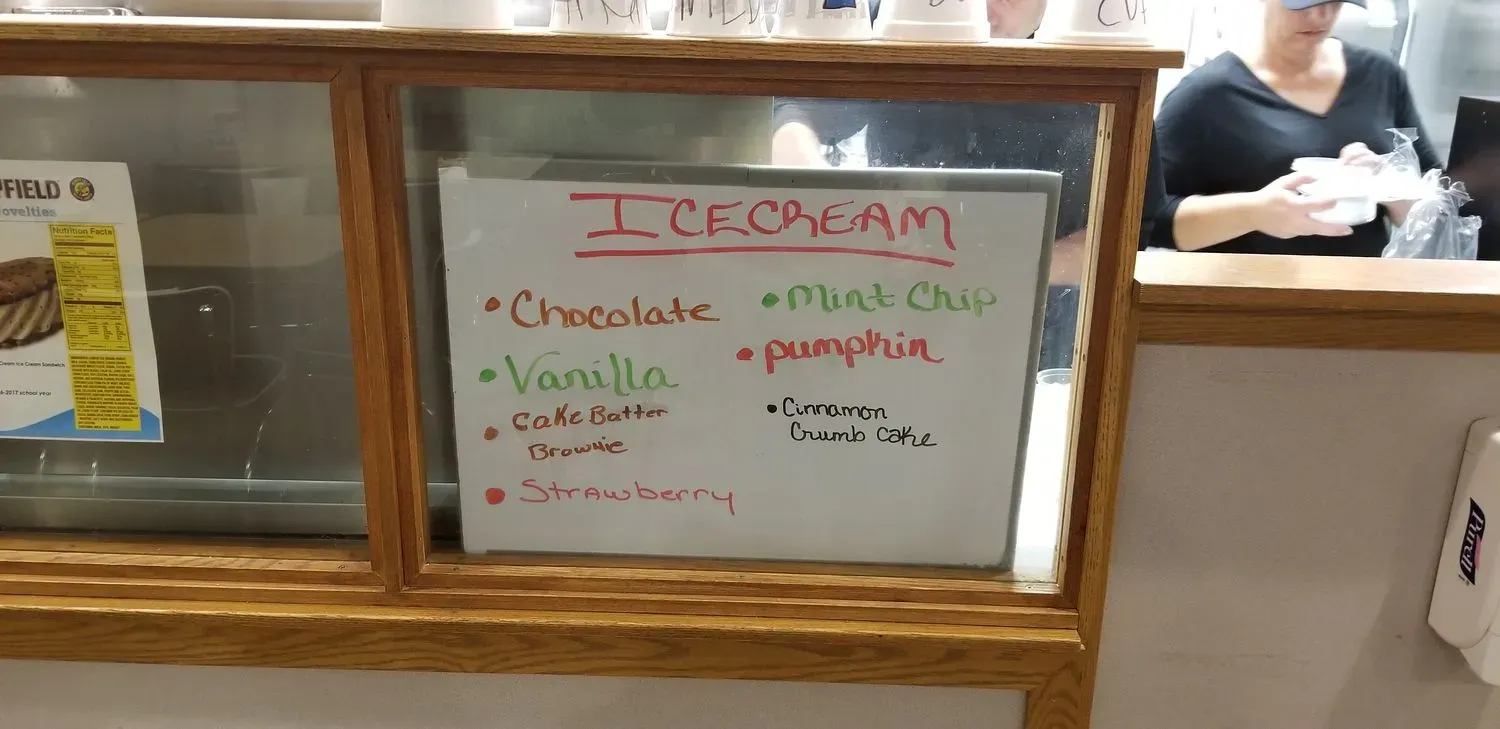 FIELD
ovelties
Nutrition Facts
Cream Ice Cream Sandwich
-2017 school year
ICECREAM
• Chocolate
• Vanilla
• Cake Batter
Brownie
• Strawberry
• Mint Chip
• pumpkin
• Cinnamon
Crumb Cake
Purell